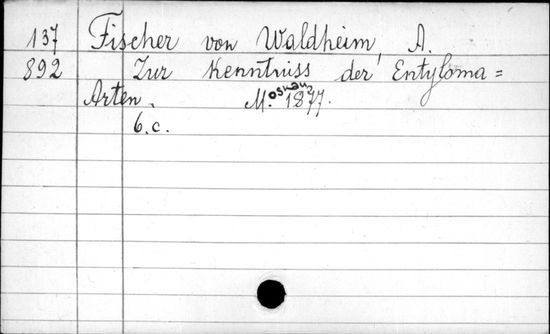 137 Fischer von Waldheim, A.
892 Zur Kenntniss der Entyloma=
Arten. Moskau 1877.
6.c.